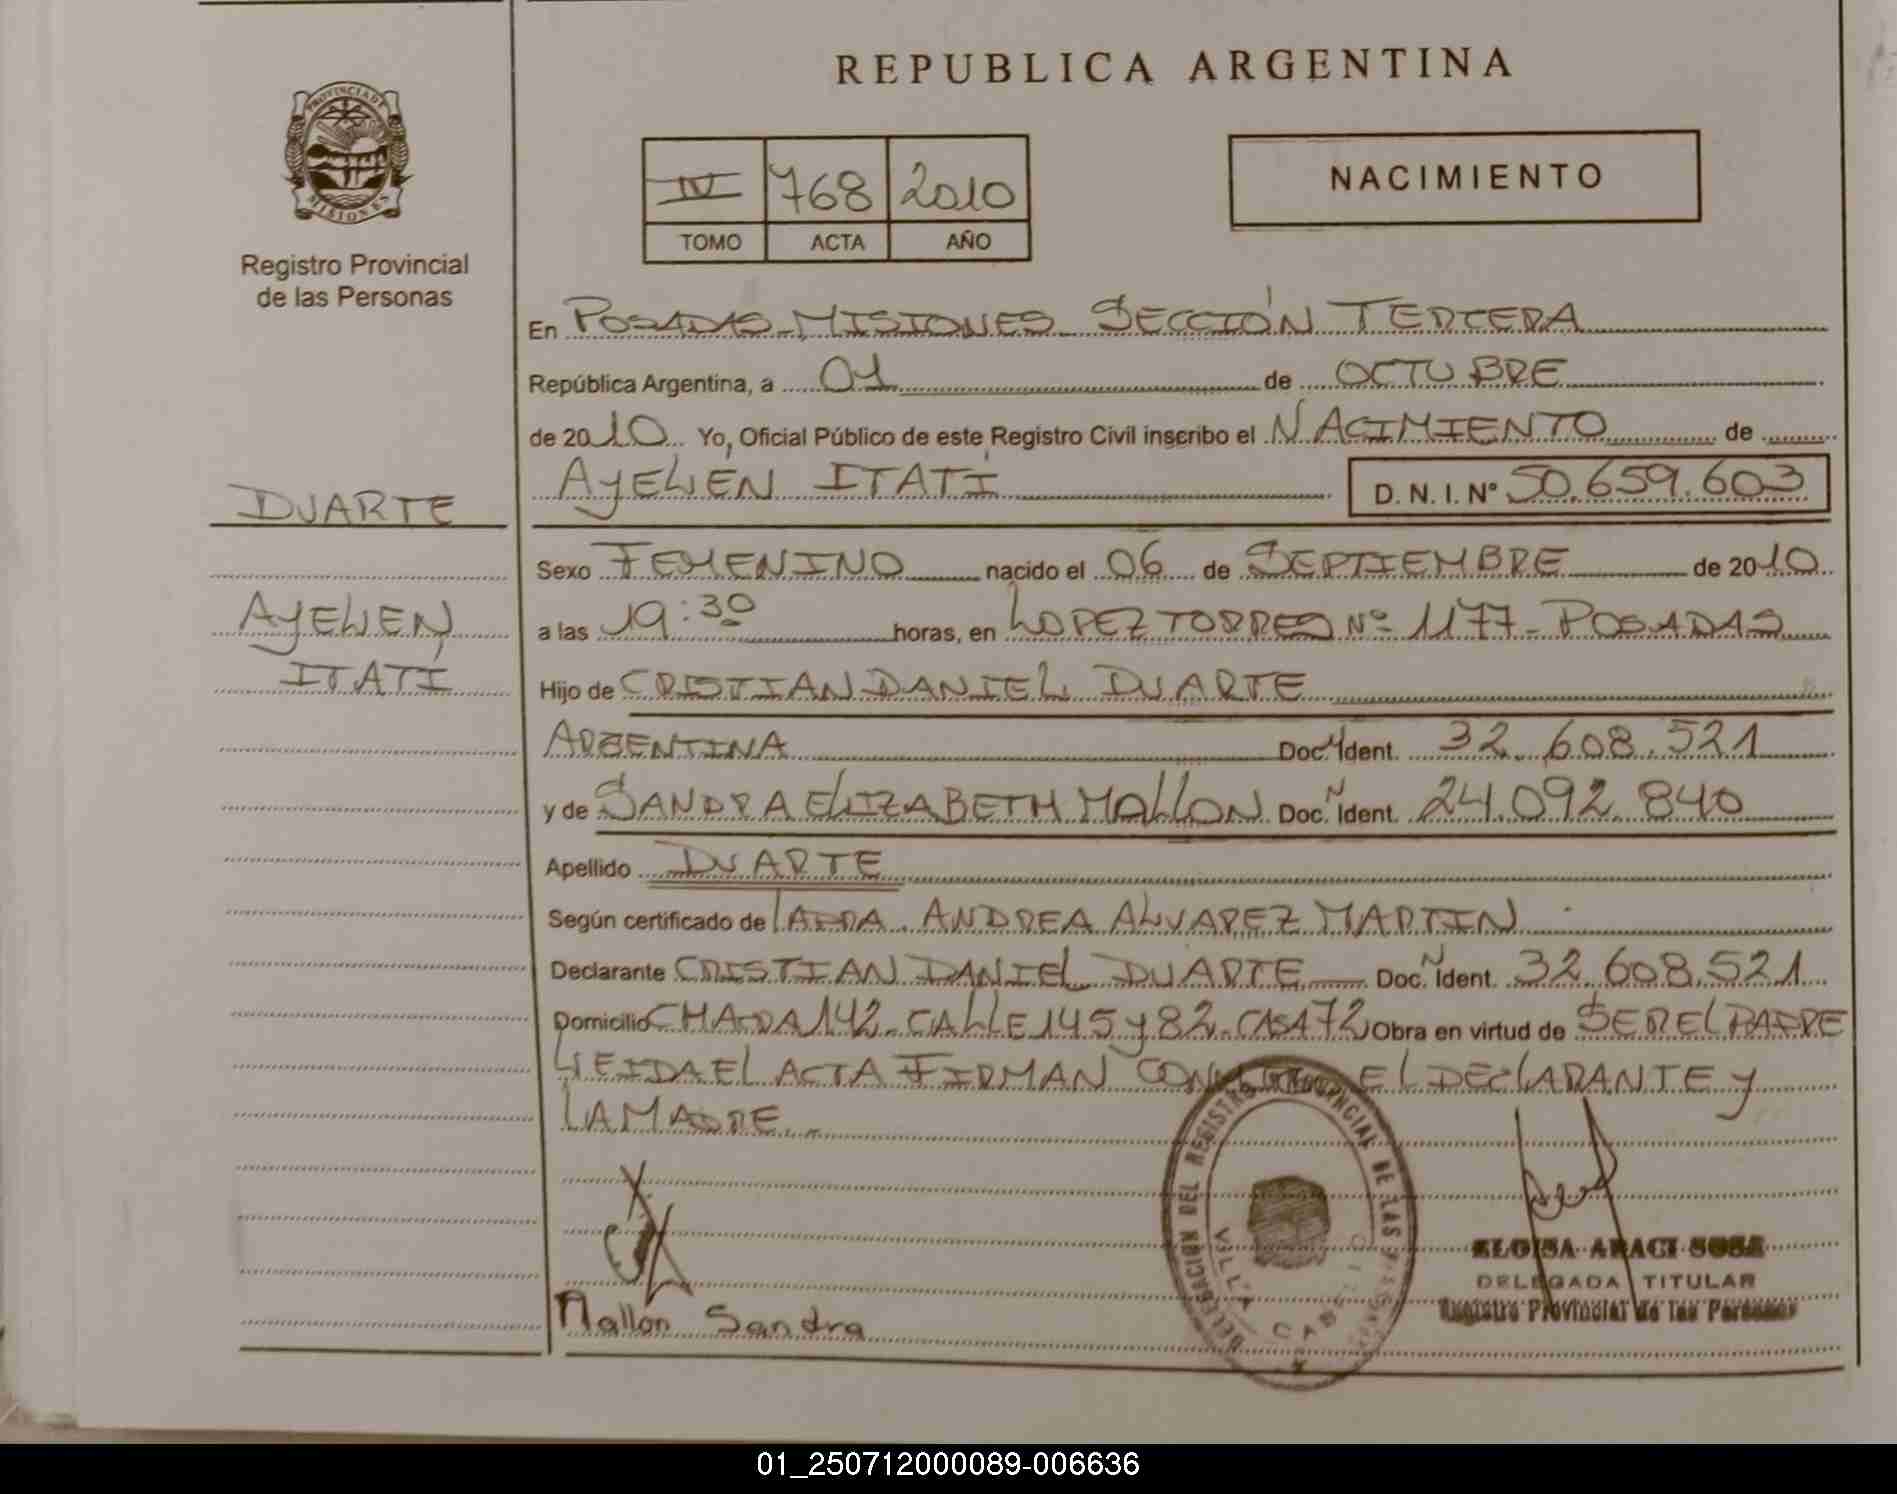 REPUBLICA ARGENTINA
PROVINCIA DE
MISIONES
Registro Provincial
de las Personas
IV 768 2010
TOMO ACTA AÑO
NACIMIENTO
En POSADAS-MISIONES SECCIÓN TERCERA
República Argentina, a 01 de OCTUBRE
de 2010 Yo, Oficial Público de este Registro Civil inscribo el NACIMIENTO de
AYELÉN ITATÍ D. N. I. Nº 50.659.603
DUARTE
Sexo FEMENINO nacido el 06 de SEPTIEMBRE de 2010
AYELEN,
a las 19:30 horas, en LOPEZ TORRES Nº 1177-POSADAS
ITATÍ
Hijo de CRISTIAN DANIEL DUARTE
ARGENTINA Doc. Ident. 32.608.521
y de SANDRA ELIZABETH MALLON Doc. Ident. 24.092.840
Apellido DUARTE
Según certificado de ANDREA ALVAREZ MARTIN
Declarante CRISTIAN DANIEL DUARTE Doc. Ident. 32.608.521
Domicilio CHACRA 142-CALLE 145 y 82-CASA 72 Obra en virtud de SER EL PADRE
LEIDA EL ACTA FIRMAN CONMIGO EL DECLARANTE y
LA MADRE.-
DELEGACION DEL REGISTRO PROVINCIAL DE LAS PERSONAS
VILLA CABELLO
ELOISA ARACI SOSA
DELEGADA TITULAR
Registro Provincial de las Personas
Mallon Sandra
01_250712000089-006636